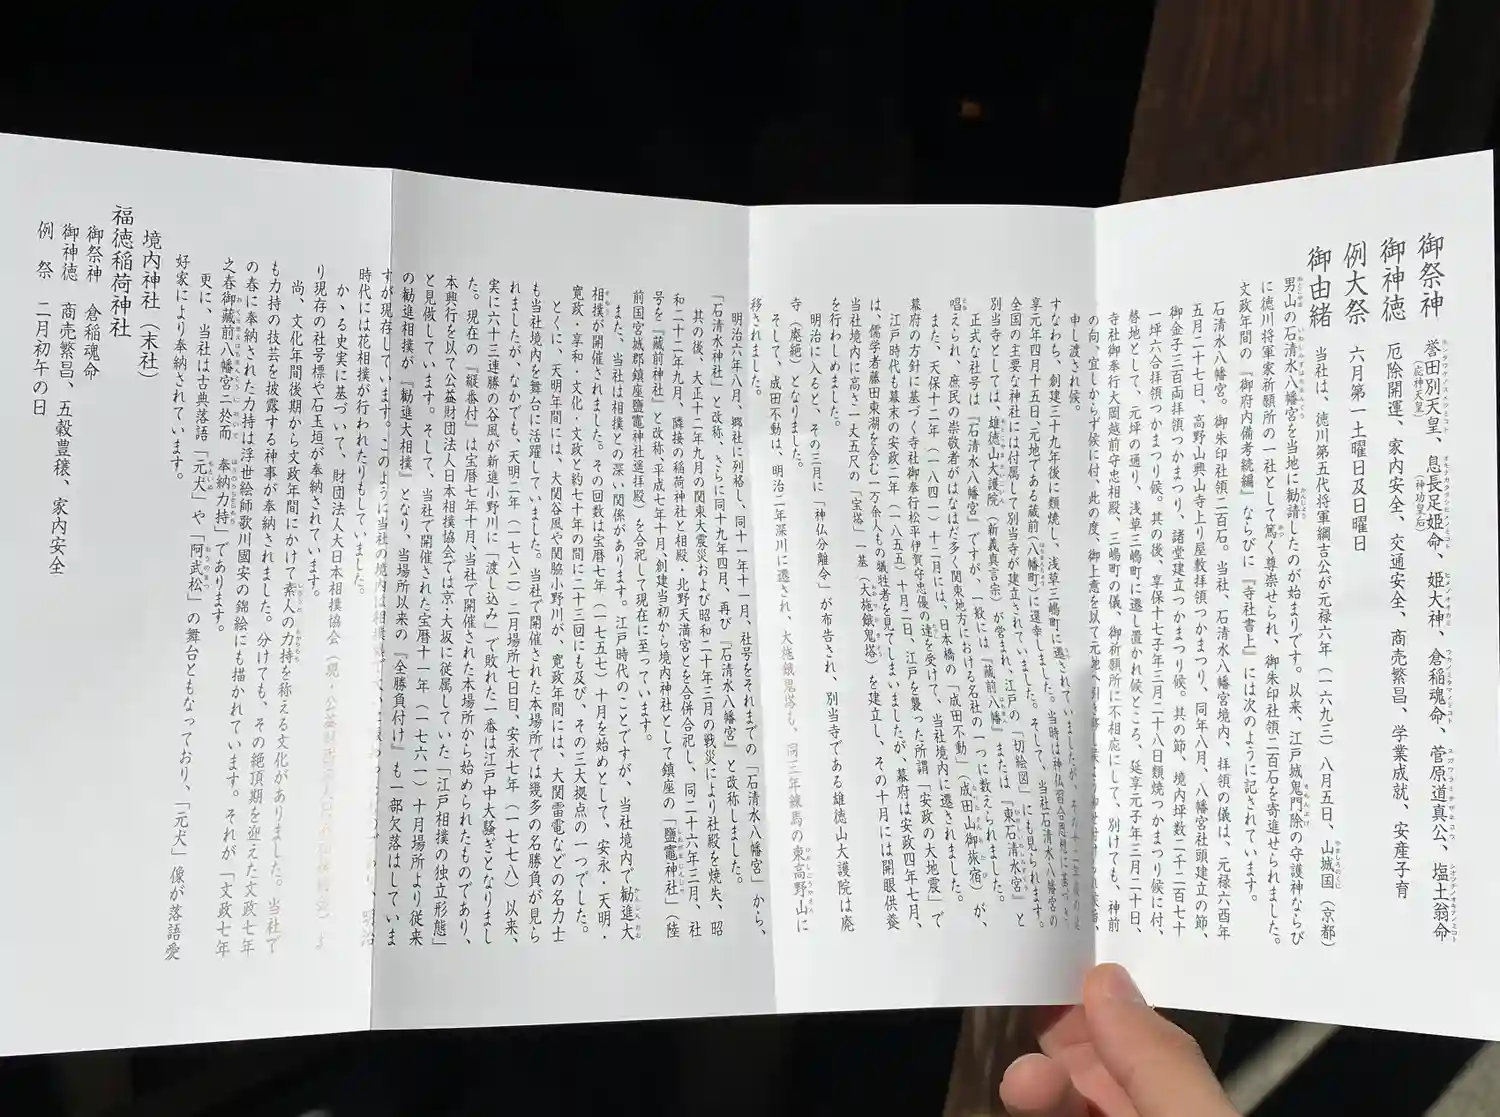 御祭神　誉田別天皇、息長足姫命、姫大神、倉稲魂命、菅原道真公、塩土翁命
（応神天皇）　（神功皇后）
御神徳　厄除開運、家内安全、交通安全、商売繁昌、学業成就、安産子育
例大祭　六月第一土曜日及日曜日
御由緒　当社は、徳川第五代将軍綱吉公が元禄六年（一六九三）八月五日、山城国（京都）
男山の石清水八幡宮を当地に勧請したのが始まりです。以来、江戸城鬼門除の守護神ならび
に徳川将軍家祈願所の一社として篤く尊崇せられ、御朱印社領二百石を寄進せられました。
文政年間の『御府内備考続編』ならびに『寺社書上』には次のように記されています。
石清水八幡宮。御朱印社領二百石。当社、石清水八幡宮境内、拝領の儀は、元禄六酉年
五月二十七日、高野山興山寺上り屋敷拝領つかまつり、同年八月、八幡宮社頭建立の節、
御金子三百両拝領つかまつり、諸堂建立つかまつり候。其の節、境内坪数二千二百七十
一坪六合拝領つかまつり候。其の後、享保十七子年三月二十八日類焼つかまつり候に付、
替地として、元坪の通り、浅草三嶋町に遷し置かれ候ところ、延享元子年三月二十日、
寺社御奉行大岡越前守忠相殿、三嶋町の儀、御祈願所に不相応にして、別けても、神前
の向、宜しからず候に付、此の度、御上意を以て元地へ引き移
申し渡され候。
すなわち、創建三十九年後に類焼し、浅草三嶋町に遷されていましたが、その十二年後の延
享元年四月十五日、元地である蔵前（八幡町）に還幸しました。当時は神仏習合思想に基づき、
全国の主要な神社には付属して別当寺が建立されていました。そして、当社石清水八幡宮の
別当寺としては、雄徳山大護院（新義真言宗）が営まれ、江戸の「切絵図」にも見られます。
正式な社号は『石清水八幡宮』ですが、一般には『蔵前八幡』または『東石清水宮』と
唱えられ、庶民の崇敬者がはなはだ多く関東地方における名社の一つに数えられました。
また、天保十二年（一八四一）十二月には、日本橋の「成田不動」（成田山御旅宿）が、
幕府の方針に基づく寺社御奉行松平伊賀守忠優の達を受けて、当社境内に遷されました。
江戸時代も幕末の安政二年（一八五五）十月二日、江戸を襲った所謂「安政の大地震」で
は、儒学者藤田東湖を含む一万余人もの犠牲者を見てしまいましたが、幕府は安政四年七月、
当社境内に高さ二丈五尺の「宝塔」一基（大施餓鬼塔）を建立し、その十月には開眼供養
を行わしめました。
明治に入ると、その三月に「神仏分離令」が布告され、別当寺である雄徳山大護院は廃
寺（廃絶）となりました。
そして、成田不動は、明治二年深川に遷され、大施餓鬼塔も、同三年練馬の東高野山に
移されました。
明治六年八月、郷社に列格し、同十一年十一月、社号をそれまでの「石清水八幡宮」から、
「石清水神社」と改称、さらに同十九年四月、再び『石清水八幡宮』と改称しました。
其の後、大正十二年九月の関東大震災および昭和二十年三月の戦災により社殿を焼失、昭
和二十二年九月、隣接の稲荷神社と相殿・北野天満宮とを合併合祀し、同二十六年三月、社
号を『蔵前神社』と改称、平成七年十月、創建当初から境内神社として鎮座の「鹽竈神社」（陸
前国宮城郡鎮座鹽竈神社遥拝殿）を合祀して現在に至っています。
また、当社は相撲との深い関係があります。江戸時代のことですが、当社境内で勧進大
相撲が開催されました。その回数は宝暦七年（一七五七）十月を始めとして、安永・天明・
寛政・享和・文化・文政と約七十年の間に二十三回にも及び、その三大拠点の一つでした。
とくに、天明年間には、大関谷風や関脇小野川が、寛政年間には、大関雷電などの名力士
も当社境内を舞台に活躍していました。当社で開催された本場所では幾多の名勝負が見ら
れましたが、なかでも、天明二年（一七八二）二月場所七日目、安永七年（一七七八）以来、
実に六十三連勝の谷風が新進小野川に「渡し込み」で敗れた一番は江戸中大騒ぎとなりまし
た。現在の『縦番付』は宝暦七年十月、当社で開催された本場所から始められたものであり、
本興行を以て公益財団法人日本相撲協会では京・大坂に従属していた「江戸相撲の独立形態」
と見做しています。そして、当社で開催された宝暦十一年（一七六一）十月場所より従来
の勧進相撲が『勧進大相撲』となり、当場所以来の『全勝負付け』も一部欠落はしていま
すが現存しています。このように当社の境内は相撲
時代には花相撲が行われたりもしていました。
かゝる史実に基づいて、財団法人大日本相撲協会（現・
り現存の社号標や石玉垣が奉納されています。
尚、文化年間後期から文政年間にかけて素人の力持を称える文化がありました。当社で
も力持の技芸を披露する神事が奉納されました。分けても、その絶頂期を迎えた文政七年
の春に奉納された力持は浮世絵師歌川國安の錦絵にも描かれています。それが「文政七年
之春御蔵前八幡宮ニ於而　奉納力持」であります。
更に、当社は古典落語「元犬」や「阿武松」の舞台ともなっており、「元犬」像が落語愛
好家により奉納されています。
境内神社（末社）
福徳稲荷神社
御祭神　倉稲魂命
御神徳　商売繁昌、五穀豊穣、家内安全
例　祭　二月初午の日